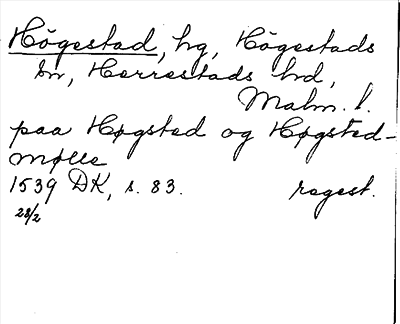 Högestad, hg, Högestads
sn, Herrestads hd,
Malm. l.
paa Høgsted og Høgsted-
mølle
1539 DK, s. 83. regest.
28/2